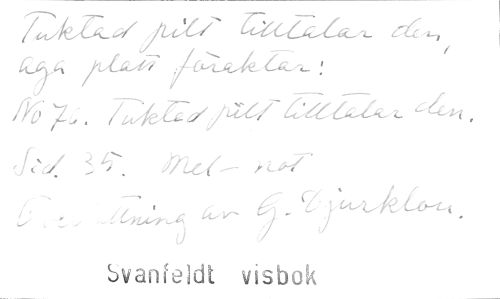 Tuktad pilt tilltalar den,
aga platt föraktar!
No 76. Tuktad pilt tilltalar den.
Sid. 35. Mel-not
Översättning av G. Djurklou.
Svanfeldt visbok